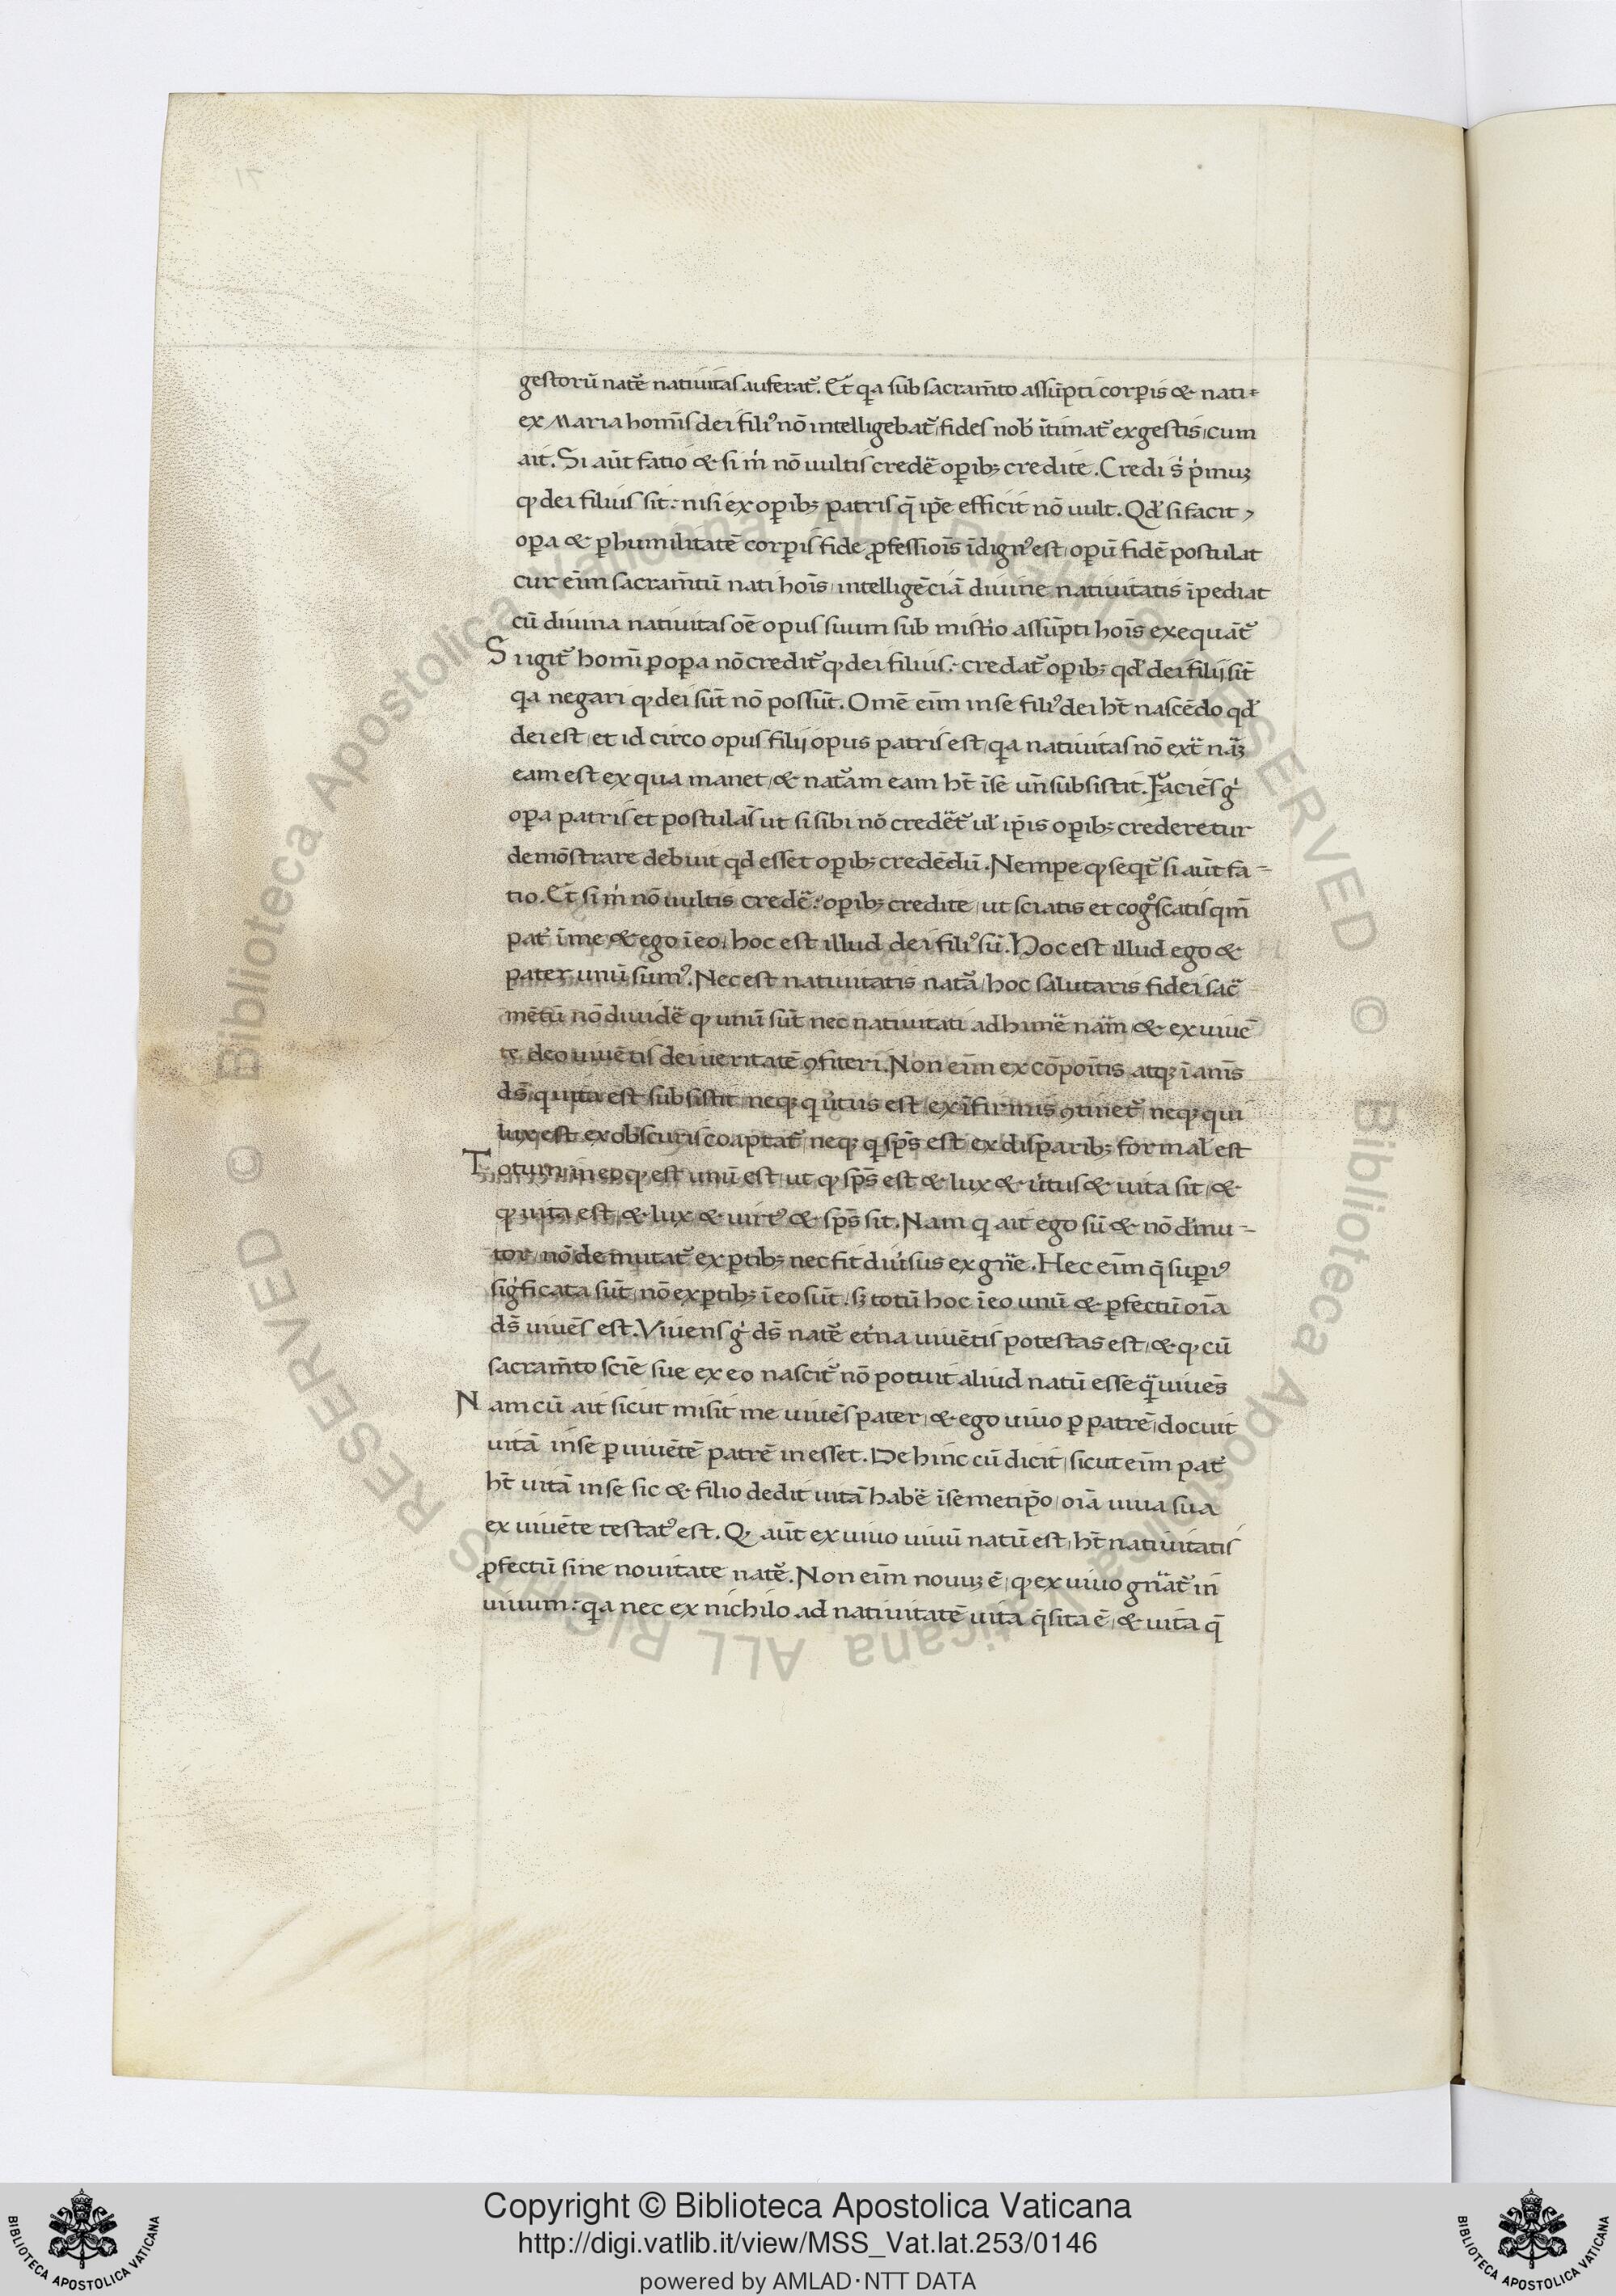 gestorū nat̄e nativitas auferat᷑. Et qa sub sacram̄to assūpti corꝑis & nati-
ex Maria homīs dei fili᷒ nō intelligebat᷑, fides nob̄ ītimat᷑ ex gestis, cum
ait. Si aūt fatio & si m̍ nō uultis credē oꝑibꝫ credite. Credi s̍ p̍muꝫ
ꝙ dei filius sit: nisi ex oꝑibꝫ patris q̄ ip̄e efficit nō uult. Qd̓ si facit
oꝑa & ꝑ humilitatē corꝑis fide ꝓfessiois īdign᷒ est, opū fidē postulat
cur eīm sacram̄tū nati hoīs, intelligēciā diuine nativitatis īpediat
cū diuina nativitas oē opus suum sub mistīo assūpti hoīs exequāt᷑
S i igit᷑ homī ꝑ oꝑa nō credit᷑ ꝙ dei filius: credat᷑ oꝑibꝫ qd̓ dei filij sīt
qa negari ꝙ dei sūt nō possūt. Omē eīm in se fili᷒ dei hт̄ nascēdo qd̓
dei est, et id circo opus filij opus patris est, qa nativitas nō ext̄ nāꝫ
eam est ex qua manet, & nat̄am eam ht̄ īse un̄ subsistit. Faciēs g̍
oꝑa patris et postulās ut si sibi nō credēt᷑ ul̓ ip̄is oꝑibꝫ crederetur
demōstrare debuit qd̓ esset oꝑibꝫ credēdū. Nempe ꝙ seqt᷑ si aūt fa-
tio. Et si m̍ nō uultis credē: oꝑibꝫ credite, ut sciatis et cog̊scatis qm̄
pat̓ īme & ego īeo, hoc est illud dei fili᷒ sū. Hoc est illud ego &
pater unū sum᷒. Nec est nativitatis nat̄a, hoc salutaris fidei sac̄
mētū nō diuidē ꝙ unū sūt nec nativitati adhimē nām, & ex uiuē
te deo uiuētis dei ueritatē ꝯfiteri. Non eīm ex cōpoītis atqꝫ ī anīs
ds̄ q uita est subsistit neqꝫ q ut̍us est, ex īfirmis ꝯtinet᷑, neqꝫ qui
lux est ex obscuris coaptat᷑, neqꝫ q sp̄s est ex disparibꝫ formal̓ est
T otum in eo ꝙ est unū est, ut ꝙ sp̄s est & lux & ut̍us & uita sit, &
ꝙ uita est, & lux & uirt᷒ & sp̄s sit. Nam q ait ego sū & nō d̓mu-
tor, nō demutat᷑ ex ꝑtibꝫ nec fit diu̍sus ex gn̄e. Hec eīm q̄ suꝑi᷒
sig̍ficata sūt, nō ex ꝑtibꝫ ī eo sūt, sꝫ totū hoc īeo unū & ꝑfectū oīa
ds̄ uiuēs est. Viuens g̍ ds̄ nat̄e et̍na uiuētis potestas est, & ꝙ cū
sacram̄to sciē sue ex eo nascit᷑ nō potuit aliud natū esse q̄ uiuēs
N am cū ait sicut misit me uiuēs pater, & ego uiuo ꝑ patrē, docuit
uitā in se ꝑ uiuētē patrē in esset. De hinc cū dicit, sicut eīm pat̓
ht̄ uitā in se sic & filio dedit uitā habē īsemetip̄o, oīa uiua sua
ex uiuēte testat᷒ est. Ꝙ aūt ex uiuo uiuū natū est, ht̄ nativitatis
ꝓfectū sine nouitate nat̄e. Non eīm nouuꝫ ē, ꝙ ex uiuo gn̄at᷑ in
uiuum: qa nec ex nichilo ad nativitatē uita q̄sita ē, & uita q̄
Copyright © Biblioteca Apostolica Vaticana
http://digi.vatlib.it/view/MSS_Vat.lat.253/0146
powered by AMLAD·NTT DATA